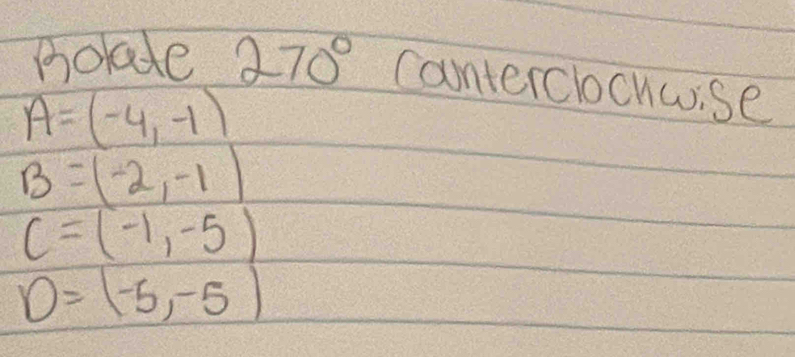 Rotate 270° Counterclockwise
A=(-4,-1)
B=(-2,-1)
C=(-1,-5)
D=(-5,-5)